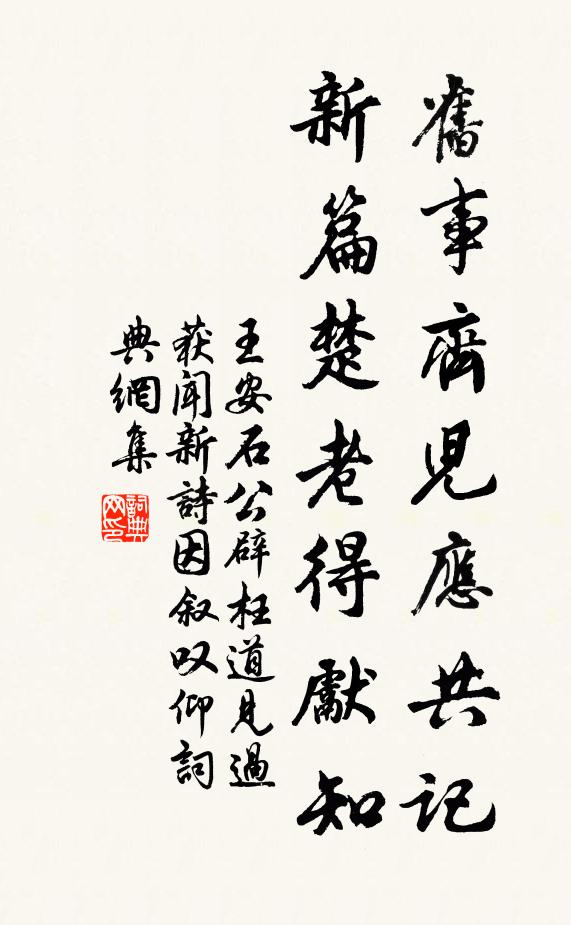 舊事齊兒應共記
新篇楚老得獻知
王安石公辟枉道見過
获聞新詩因叙叹仰詞
典網集
詞典网印